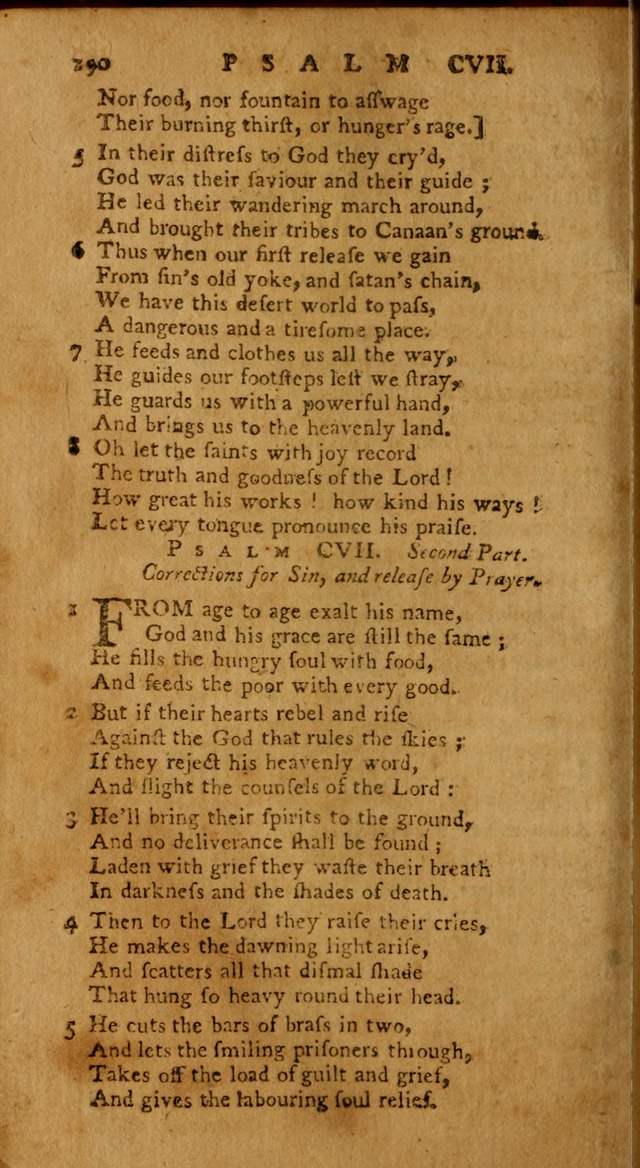 290 PSALM CVII.
Nor food, nor fountain to aſſwage
Their burning thirſt, or hunger's rage.]
5 In their diſtreſs to God they cry'd,
God was their ſaviour and their guide ;
He led their wandering march around,
And brought their tribes to Canaan's ground.
6 Thus when our firſt releaſe we gain
From ſin's old yoke, and ſatan's chain,
We have this deſert world to paſs,
A dangerous and a tireſome place.
7 He feeds and clothes us all the way,
He guides our footſteps leſt we ſtray,
He guards us with a powerful hand,
And brings us to the heavenly land.
8 Oh let the ſaints with joy record
The truth and goodneſs of the Lord !
How great his works ! how kind his ways !
Let every tongue pronounce his praiſe.
PSALM CVII. Second Part.
Corrections for Sin, and releaſe by Prayer.
1 FROM age to age exalt his name,
God and his grace are ſtill the ſame ;
He fills the hungry ſoul with food,
And feeds the poor with every good.
2 But if their hearts rebel and riſe
Againſt the God that rules the ſkies ;
If they reject his heavenly word,
And ſlight the counſels of the Lord :
3 He'll bring their ſpirits to the ground,
And no deliverance ſhall be found ;
Laden with grief they waſte their breath
In darkneſs and the ſhades of death.
4 Then to the Lord they raiſe their cries,
He makes the dawning light ariſe,
And ſcatters all that diſmal ſhade
That hung ſo heavy round their head.
5 He cuts the bars of braſs in two,
And lets the ſmiling priſoners through,
Takes off the load of guilt and grief,
And gives the labouring ſoul relief.